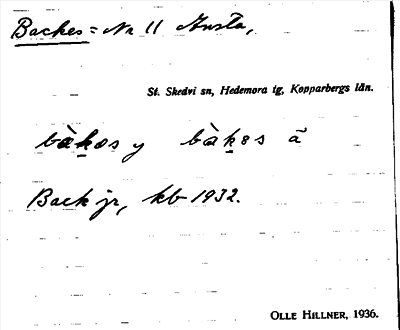 Backes = Nr 11 Ansta,
St. Skedvi sn, Hedemora tg, Kopparbergs län.
bàk̲øs y bàk̲əs ã
Back jr, kb 1932.
OLLE HILLNER, 1936.